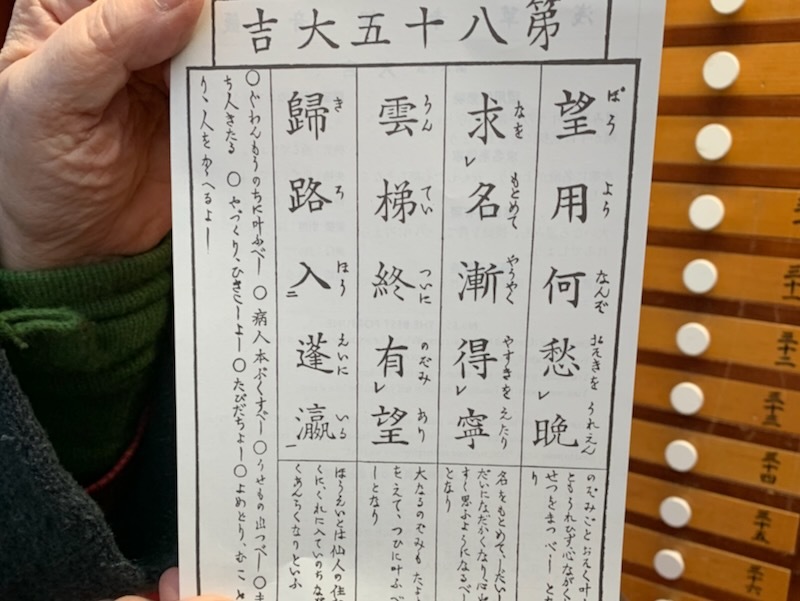 第八十五大吉
望用何愁晩
ぼう よう なんぞ おそきを うれえん
求レ名漸得レ寧
なを もとめて やうやく やすきを えたり
雲梯終有レ望
うん てい ついに のぞみ あり
歸路入二蓬瀛一
き ろ ほう えいに いる
のぞみごとおそく叶
ともうれひず心ながく
せつをまつべし とな
り
名をもとめてしだいし
だいになだかくなりは
すく思ふようになるべし
となり
大なるのぞみもたより
をえて、つひに叶ふべ
しとなり
ほうえいとは仙人の住
くに、ぐれに入ていのちな
くあんらくなりといふ
〇ぐわんもうのちに叶ふべし 〇病人本ぶくすべし 〇うせもの出づべし 〇ま
ち人きたる 〇やづくり、ひきこしよし 〇たびだちよし 〇よめとり、むこと
り、人をかゝへるよし
三十二
三十三
三十四
三十五
三十六